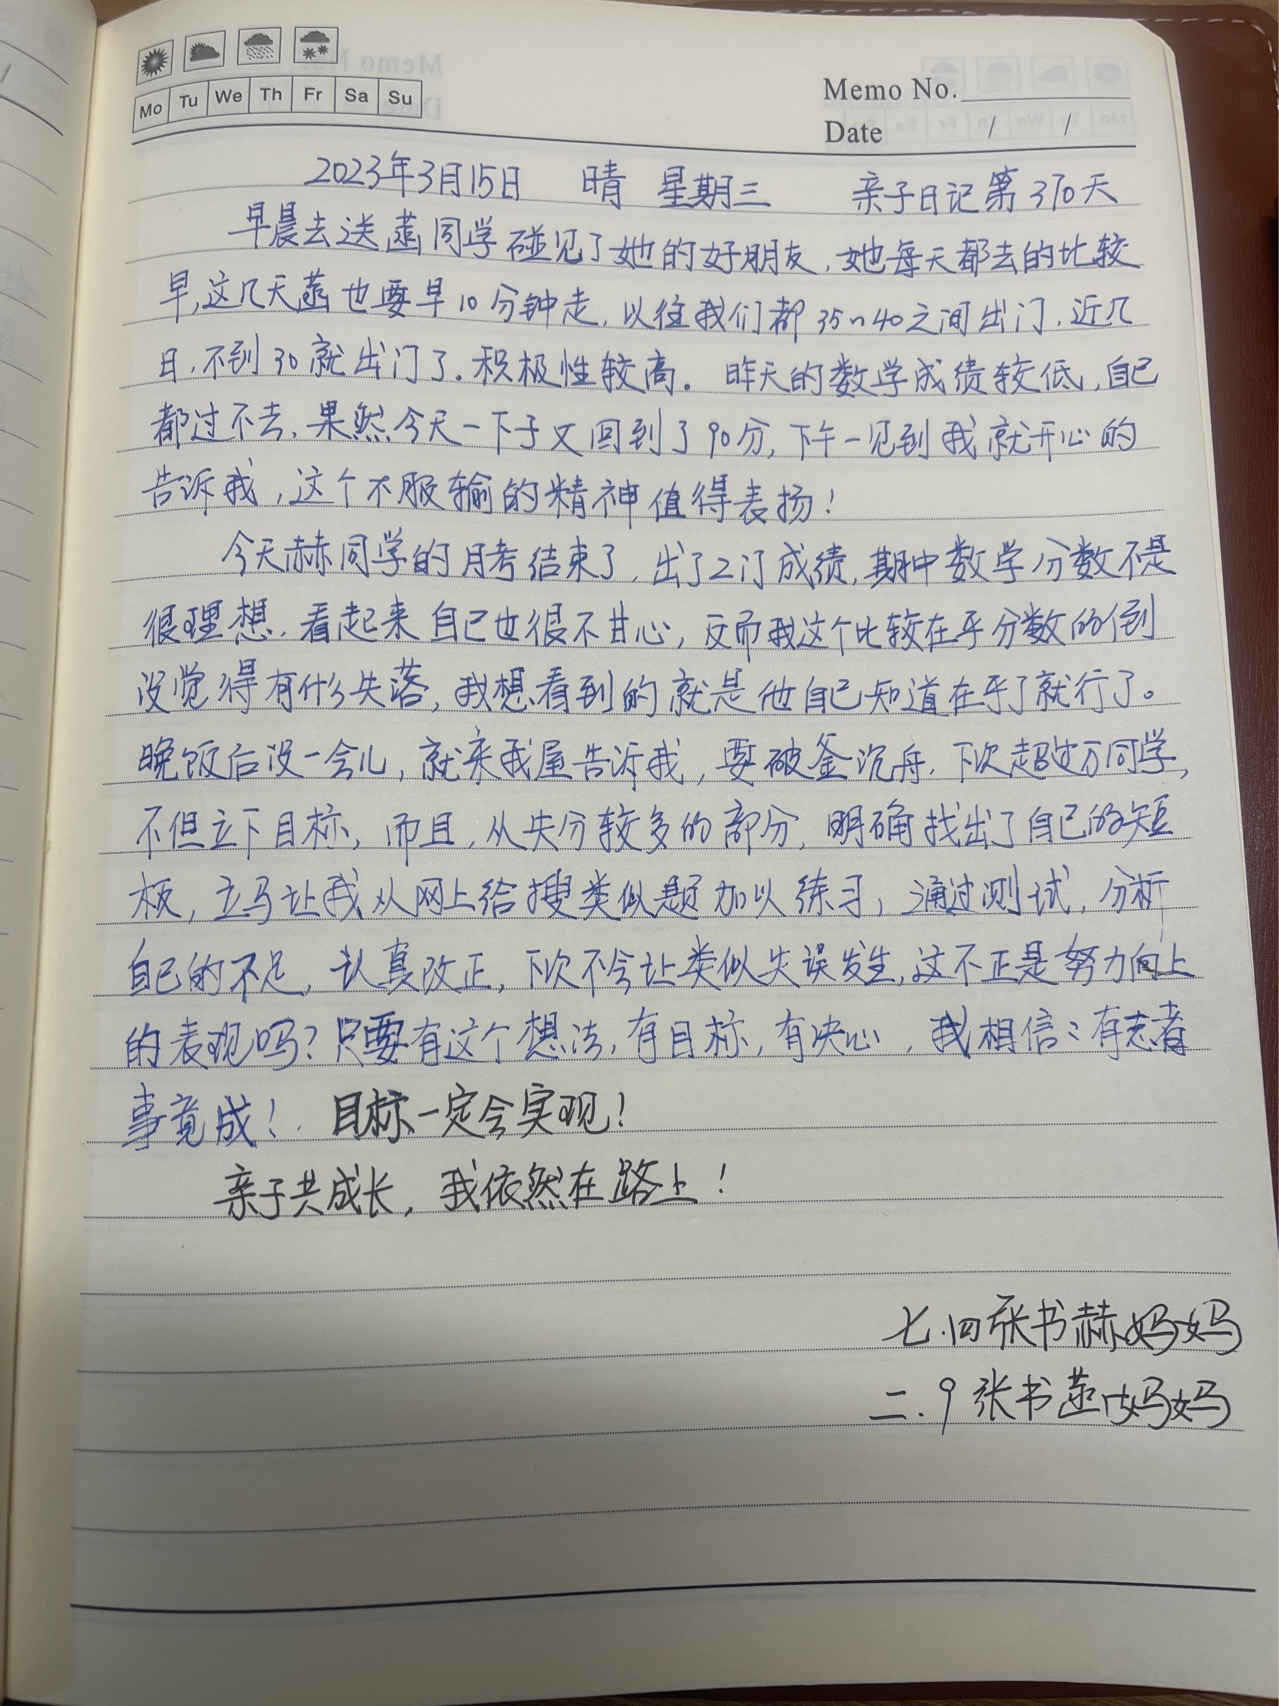 Mo Tu We Th Fr Sa Su
Memo No.
Date / /
2023年3月15日 晴 星期三 亲子日记第370天
早晨去送菡同学碰见了她的好朋友,她每天都去的比较
早,这几天菡也要早10分钟走,以往我们都35~40之间出门,近几
日,不到30就出门了。积极性较高。昨天的数学成绩较低,自己
都过不去,果然今天一下子又回到了90分,下午一见到我就开心的
告诉我,这个不服输的精神值得表扬!
今天赫同学的月考结束了,出了2门成绩,期中数学分数不是
很理想,看起来自己也很不甘心,反而我这个比较在乎分数的倒
没觉得有什么失落,我想看到的就是他自己知道在乎了就行了。
晚饭后没一会儿,就来我屋告诉我,要破釜沉舟,下次超过万同学,
不但立下目标,而且,从失分较多的部分,明确找出了自己的短
板,立马让我从网上给搜类似题加以练习,通过测试,分析
自己的不足,认真改正,下次不会让类似失误发生,这不正是努力向上
的表现吗?只要有这个想法,有目标,有决心,我相信:有志者
事竟成!目标一定会实现!
亲子共成长,我依然在路上!
七.四张书赫妈妈
二.9张书菡妈妈